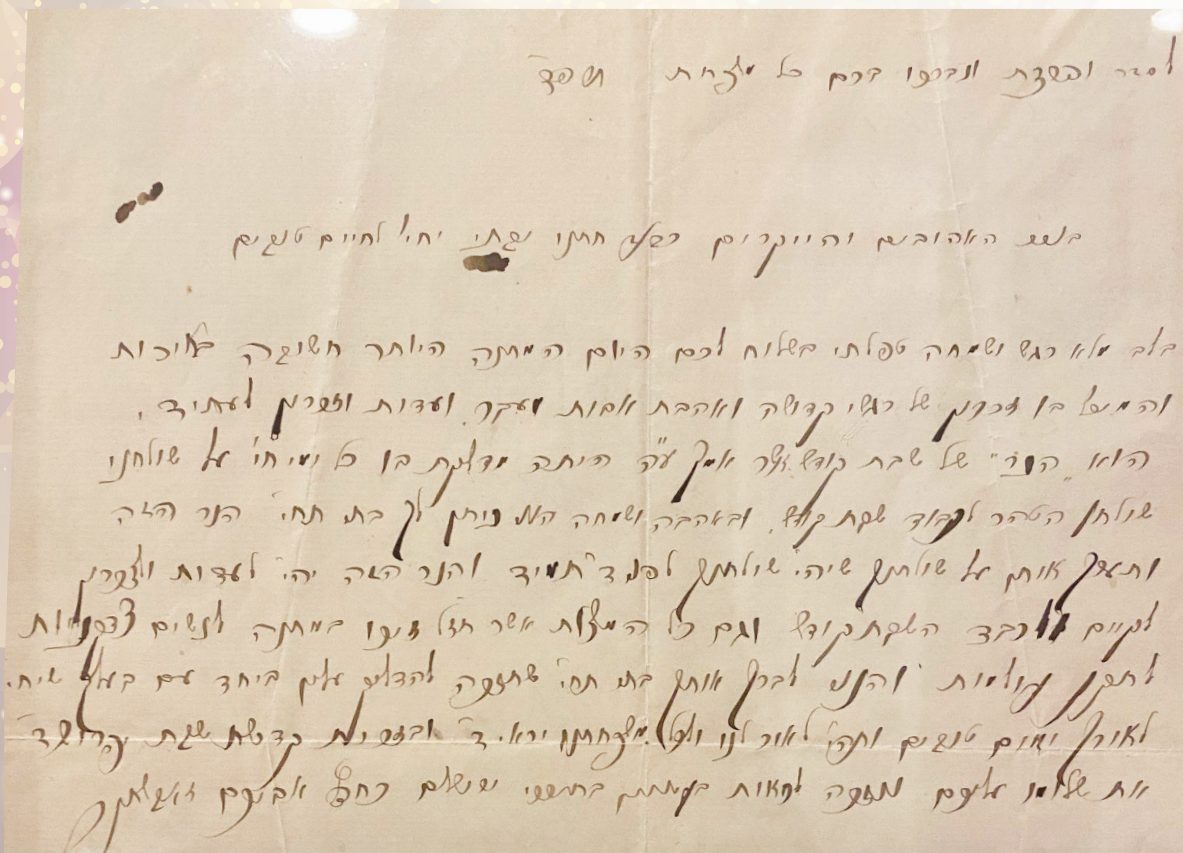 לסדר והשבת ונברכו בכם כל משפחות תשפד
בנינו האהובים והייקרים חתנו יחי' לחיים טובים
בלב מלא רגש ושמחה טפלתי בשלוח לכם היום המתנה היותר חשובה באיכות
והמוצל בו זכרון של רגשי קדושה ואהבת אבות ועדות וזכרון לעתיד.
הוא "הנר" של שבת קודש אשר אמך ע"ה היתה מדלקת בו כל ימי חי' על שולחני
שולחן הטהר לכבוד שבת קודש, ובאהבה ושמחה הנני נותן לך בתי תחי' הנר הזה
ותערך אותן על שולחנך שיהי' שולחנך לפני ד' תמיד והנר הזה יהי' לעדות ולזכרון
לקיים ולכבד השבת קודש וגם כל המצות אשר חז"ל זיכו במתנה לנשים צדקניות
לתקן והנני לברך אותך בתי תחי' שתזכה להדליק עליו ביחד עם בעלך שיחי'
לאורך ימים טובים ותהי' לאור לנו ולכל משפחתנו יראי ד' ובזכות קדושת שבת
את שלומו עליכם ונזכה לראות בנחמת ירושלים אביכם